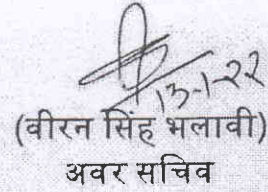 13-1-22
(वीरन सिंह भलावी)
अवर सचिव